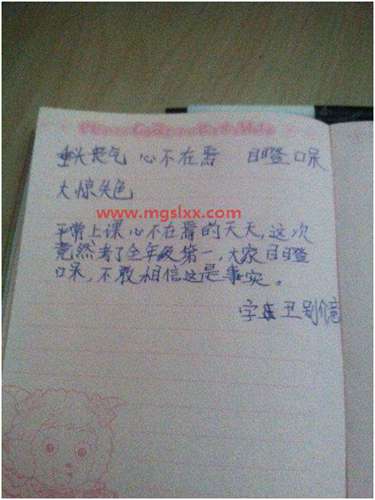 垂头丧气 心不在焉 目瞪口呆
大惊失色
www.mgslxx.com
平常上课心不在焉的天天,这次
竟然考了全年级第一,大家目瞪
口呆,不敢相信这是事实。
字 丑别介意